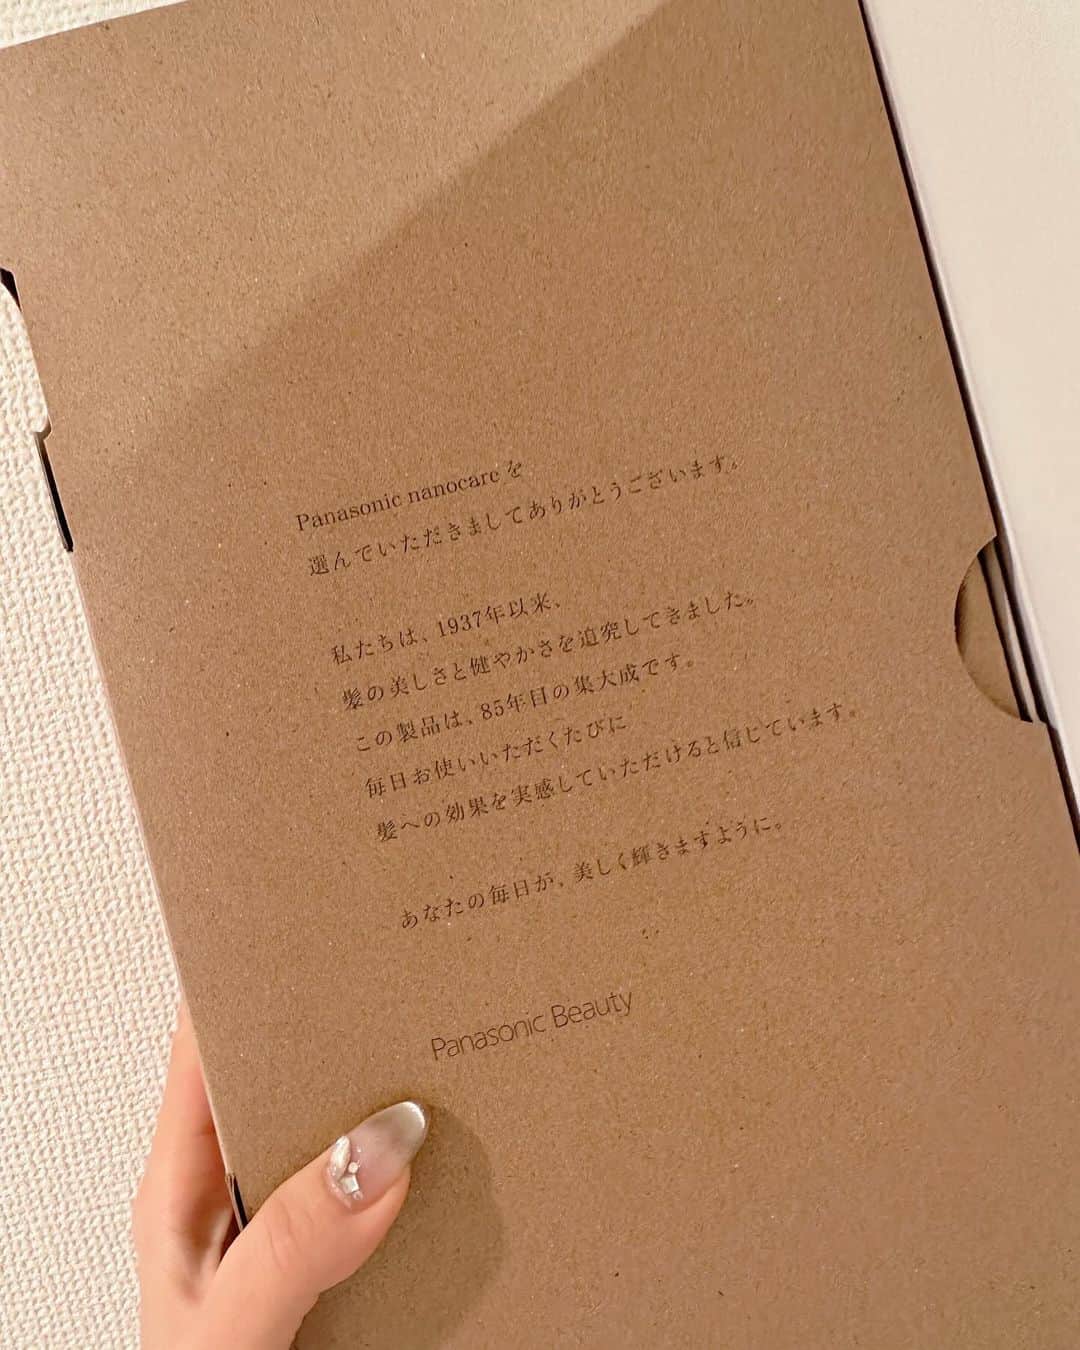 Panasonic nanocareを
選んでいただきましてありがとうございます。
私たちは、1937年以来、
髪の美しさと健やかさを追究してきました。
この製品は、85年目の集大成です。
毎日お使いいただくたびに
髪への効果を実感していただけると信じています。
あなたの毎日が、美しく輝きますように。
Panasonic Beauty